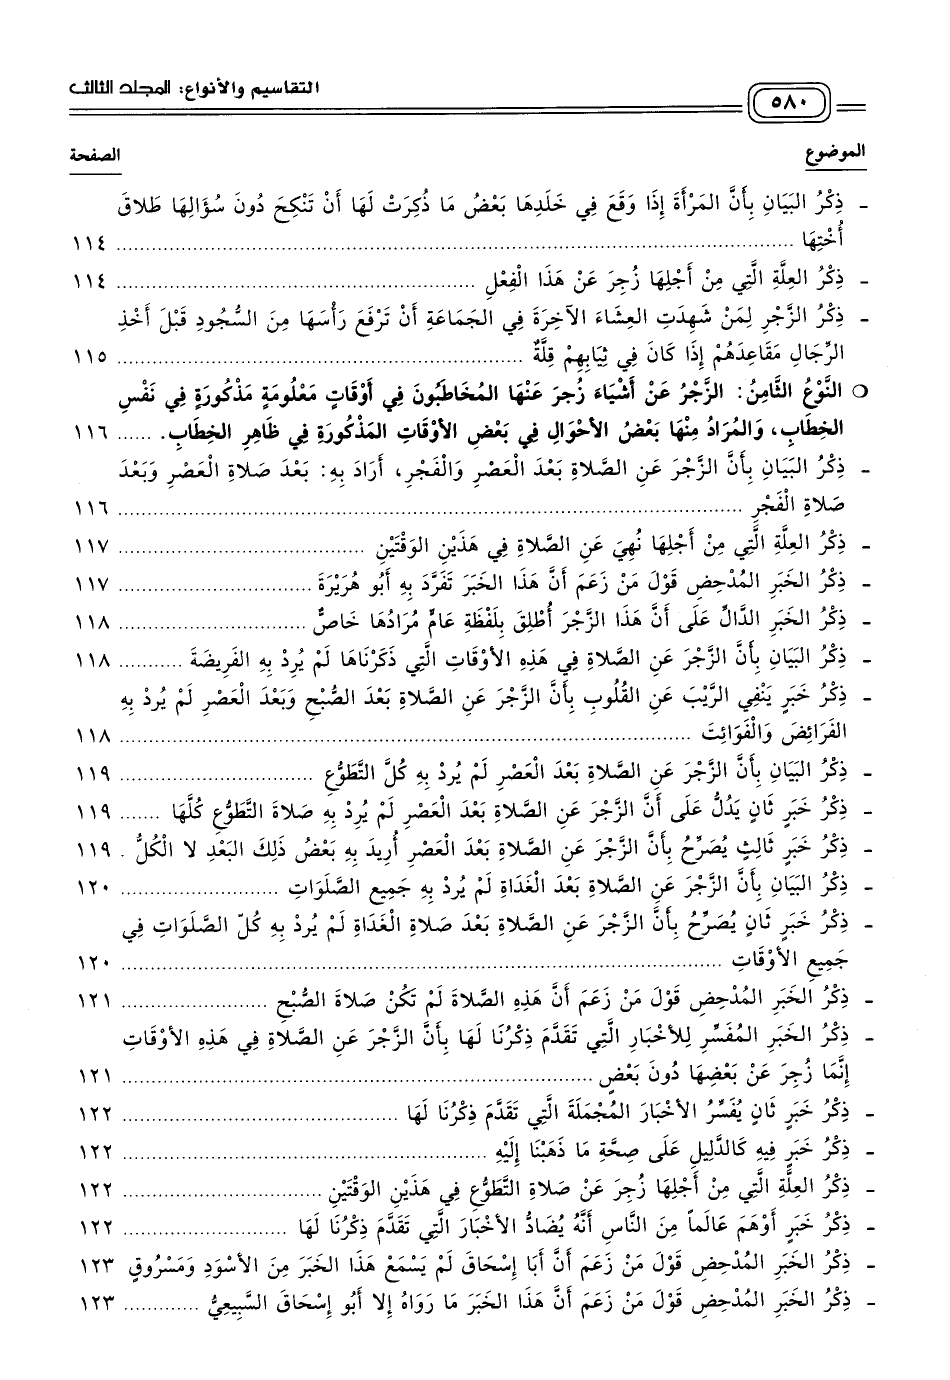 التقاسيم والأنواع: المجلد الثالث
٥٨٠
الموضوع الصفحة
- ذِكْرُ البَيَانِ بِأَنَّ المَرْأَةَ إِذَا وَقَعَ فِي خَلَدِهَا بَعْضُ مَا ذُكِرَتْ لَهَا أَنْ تَنْكِحَ دُونَ سُؤَالِهَا طَلَاقَ
أُخْتِهَا ........ ١١٤
- ذِكْرُ العِلَّةِ الَّتِي مِنْ أَجْلِهَا زُجِرَ عَنْ هَذَا الْفِعْلِ ........ ١١٤
- ذِكْرُ الزَّجْرِ لِمَنْ شَهِدَتِ العِشَاءَ الآخِرَةَ فِي الجَمَاعَةِ أَنْ تَرْفَعَ رَأْسَهَا مِنَ السُّجُودِ قَبْلَ أَخْذِ
الرِّجَالِ مَقَاعِدَهُمْ إِذَا كَانَ فِي ثِيَابِهِمْ قِلَّةٌ ........ ١١٥
○ النَّوْعُ الثَّامِنُ: الزَّجْرُ عَنْ أَشْيَاءَ زُجِرَ عَنْهَا المُخَاطَبُونَ فِي أَوْقَاتٍ مَعْلُومَةٍ مَذْكُورَةٍ فِي نَفْسِ
الخِطَابِ، وَالمُرَادُ مِنْهَا بَعْضُ الأَحْوَالِ فِي بَعْضِ الأَوْقَاتِ المَذْكُورَةِ فِي ظَاهِرِ الخِطَابِ. ...... ١١٦
- ذِكْرُ البَيَانِ بِأَنَّ الزَّجْرَ عَنِ الصَّلَاةِ بَعْدَ الْعَصْرِ وَالفَجْرِ، أَرَادَ بِهِ: بَعْدَ صَلَاةِ الْعَصْرِ وَبَعْدَ
صَلَاةِ الْفَجْرِ ........ ١١٦
- ذِكْرُ العِلَّةِ الَّتِي مِنْ أَجْلِهَا نُهِيَ عَنِ الصَّلَاةِ فِي هَذَيْنِ الوَقْتَيْنِ ........ ١١٧
- ذِكْرُ الخَبَرِ المُدْحِضِ قَوْلَ مَنْ زَعَمَ أَنَّ هَذَا الخَبَرَ تَفَرَّدَ بِهِ أَبُو هُرَيْرَةَ ........ ١١٧
- ذِكْرُ الخَبَرِ الدَّالِّ عَلَى أَنَّ هَذَا الزَّجْرَ أُطْلِقَ بِلَفْظَةِ عَامٍّ مُرَادُهَا خَاصٌّ ........ ١١٨
- ذِكْرُ البَيَانِ بِأَنَّ الزَّجْرَ عَنِ الصَّلَاةِ فِي هَذِهِ الأَوْقَاتِ الَّتِي ذَكَرْنَاهَا لَمْ يُرِدْ بِهِ الفَرِيضَةَ ........ ١١٨
- ذِكْرُ خَبَرٍ يَنْفِي الرَّيْبَ عَنِ القُلُوبِ بِأَنَّ الزَّجْرَ عَنِ الصَّلَاةِ بَعْدَ الصُّبْحِ وَبَعْدَ الْعَصْرِ لَمْ يُرِدْ بِهِ
الفَرَائِضَ وَالْفَوَائِتَ ........ ١١٨
- ذِكْرُ البَيَانِ بِأَنَّ الزَّجْرَ عَنِ الصَّلَاةِ بَعْدَ الْعَصْرِ لَمْ يُرِدْ بِهِ كُلَّ التَّطَوُّعِ ........ ١١٩
- ذِكْرُ خَبَرٍ ثَانٍ يَدُلُّ عَلَى أَنَّ الزَّجْرَ عَنِ الصَّلَاةِ بَعْدَ الْعَصْرِ لَمْ يُرِدْ بِهِ صَلَاةَ التَّطَوُّعِ كُلَّهَا ....... ١١٩
- ذِكْرُ خَبَرٍ ثَالِثٍ يُصَرِّحُ بِأَنَّ الزَّجْرَ عَنِ الصَّلَاةِ بَعْدَ الْعَصْرِ أُرِيدَ بِهِ بَعْضُ ذَلِكَ البَعْدِ لَا الْكُلُّ . ١١٩
- ذِكْرُ البَيَانِ بِأَنَّ الزَّجْرَ عَنِ الصَّلَاةِ بَعْدَ الْغَدَاةِ لَمْ يُرِدْ بِهِ جَمِيعَ الصَّلَوَاتِ ........ ١٢٠
- ذِكْرُ خَبَرٍ ثَانٍ يُصَرِّحُ بِأَنَّ الزَّجْرَ عَنِ الصَّلَاةِ بَعْدَ صَلَاةِ الْغَدَاةِ لَمْ يُرِدْ بِهِ كُلَّ الصَّلَوَاتِ فِي
جَمِيعِ الأَوْقَاتِ ........ ١٢٠
- ذِكْرُ الخَبَرِ المُدْحِضِ قَوْلَ مَنْ زَعَمَ أَنَّ هَذِهِ الصَّلَاةَ لَمْ تَكُنْ صَلَاةَ الصُّبْحِ ........ ١٢١
- ذِكْرُ الخَبَرِ المُفَسِّرِ لِلأَخْبَارِ الَّتِي تَقَدَّمَ ذِكْرُنَا لَهَا بِأَنَّ الزَّجْرَ عَنِ الصَّلَاةِ فِي هَذِهِ الأَوْقَاتِ
إِنَّمَا زُجِرَ عَنْ بَعْضِهَا دُونَ بَعْضٍ ........ ١٢١
- ذِكْرُ خَبَرٍ ثَانٍ يُفَسِّرُ الأَخْبَارَ المُجْمَلَةَ الَّتِي تَقَدَّمَ ذِكْرُنَا لَهَا ........ ١٢٢
- ذِكْرُ خَبَرٍ فِيهِ كَالدَّلِيلِ عَلَى صِحَّةِ مَا ذَهَبْنَا إِلَيْهِ ........ ١٢٢
- ذِكْرُ العِلَّةِ الَّتِي مِنْ أَجْلِهَا زُجِرَ عَنْ صَلَاةِ التَّطَوُّعِ فِي هَذَيْنِ الوَقْتَيْنِ ........ ١٢٢
- ذِكْرُ خَبَرٍ أَوْهَمَ عَالَماً مِنَ النَّاسِ أَنَّهُ يُضَادُّ الأَخْبَارَ الَّتِي تَقَدَّمَ ذِكْرُنَا لَهَا ........ ١٢٢
- ذِكْرُ الخَبَرِ المُدْحِضِ قَوْلَ مَنْ زَعَمَ أَنَّ أَبَا إِسْحَاقَ لَمْ يَسْمَعْ هَذَا الخَبَرَ مِنَ الأَسْوَدِ وَمَسْرُوقٍ ١٢٣
- ذِكْرُ الخَبَرِ المُدْحِضِ قَوْلَ مَنْ زَعَمَ أَنَّ هَذَا الخَبَرَ مَا رَوَاهُ إِلَّا أَبُو إِسْحَاقَ السَّبِيعِيُّ ........ ١٢٣